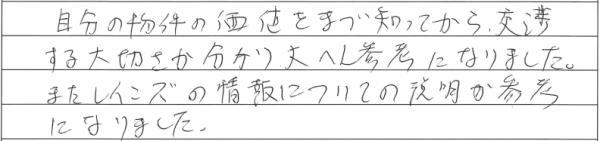 自分の物件の価値をまづ知ってから、交渉
する大切さが分かり大へん参考になりました。
またレインズの情報についての説明が参考
になりました。